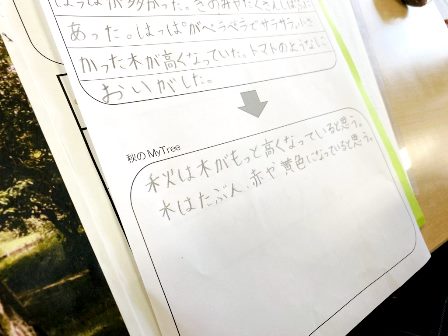 はっぱが多かった。きのみがたくさん
あった。はっぱがペラペラでサラサラ。小さ
かった木が高くなっていた。トマトのような
おいがした。
秋のMyTree
秋は木がもっと高くなっていると思う。
木はたぶん、赤や黄色になっていると思う。